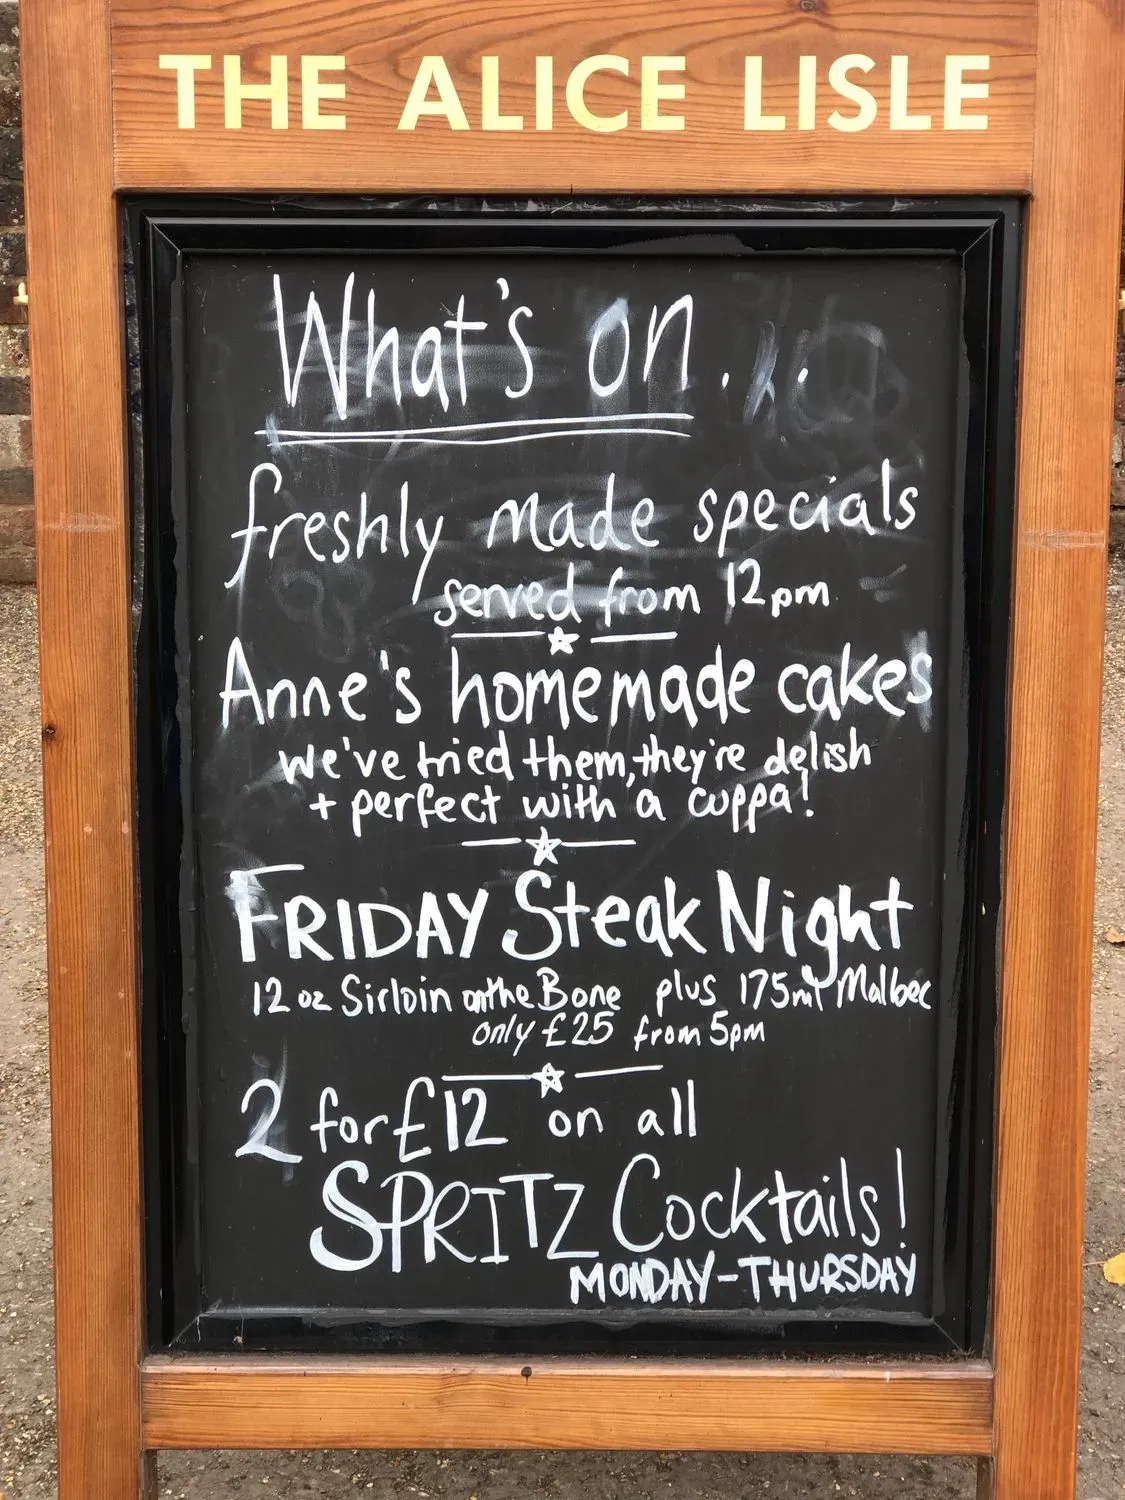 THE ALICE LISLE
What's on...
freshly made specials
served from 12pm
Anne's homemade cakes
we've tried them, they're delish
+ perfect with a cuppa!
FRIDAY Steak Night
12 oz Sirloin on the Bone plus 175ml Malbec
only £25 from 5pm
2 for £12 on all
SPRITZ Cocktails!
MONDAY-THURSDAY